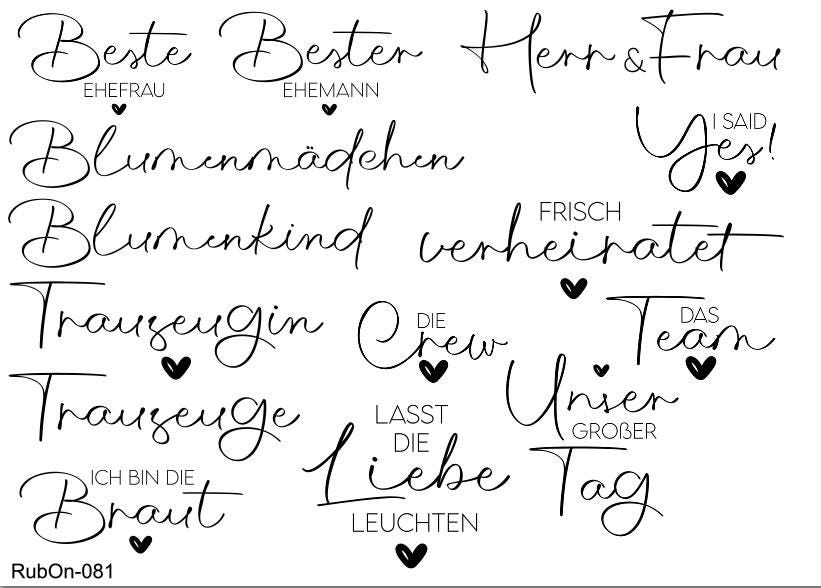 Beste
EHEFRAU
Bester
EHEMANN
Herr & Frau
Blumenmädchen
I SAID
Yes!
Blumenkind
FRISCH
verheiratet
Trauzeugin
DIE
Crew
DAS
Team
Trauzeuge
LASST
DIE
Liebe
LEUCHTEN
Unser
GROßER
Tag
ICH BIN DIE
Braut
RubOn-081